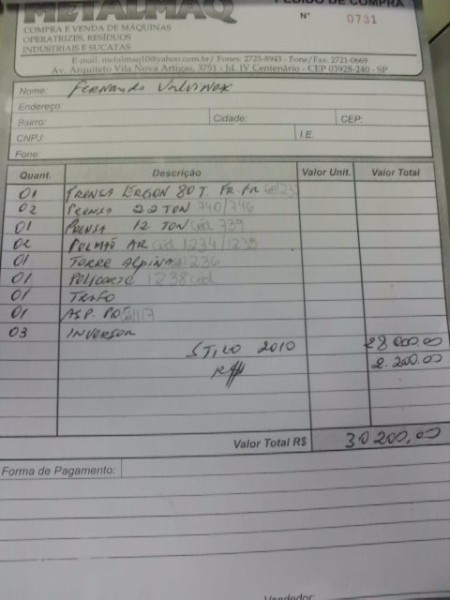 METALMAQ
PEDIDO DE COMPRA
Nº 0731
COMPRA E VENDA DE MÁQUINAS
OPERATRIZES, RESÍDUOS
INDUSTRIAIS E SUCATAS
E-mail: metalmaq10@yahoo.com.br/ Fones: 2725-8943 - Fone/Fax: 2721-0669
Av. Arquiteto Vila Nova Artigas, 3751 - Jd. IV Centenário - CEP 03928-240 - SP
Nome: Fernando
Endereço:
Bairro: Cidade: CEP:
CNPJ: I.E.
Fone:
Quant. Descrição Valor Unit. Valor Total
01 PRENSA ERGON 80 T. FR. FR.
02 PRENSA 22 TON 740/746
01 PRENSA 12 TON Cod 739
02 PULMÃO AR Cod 1234/1235
01 TORRE ALPINA 1236
01 POLICORTE 1238 Cod
01 TRAFO
01 ASP. PÓ
03 INVERSOR
STILO 2010 28 000,00
2.200,00
Valor Total R$ 30 200,00
Forma de Pagamento:
Vendedor: